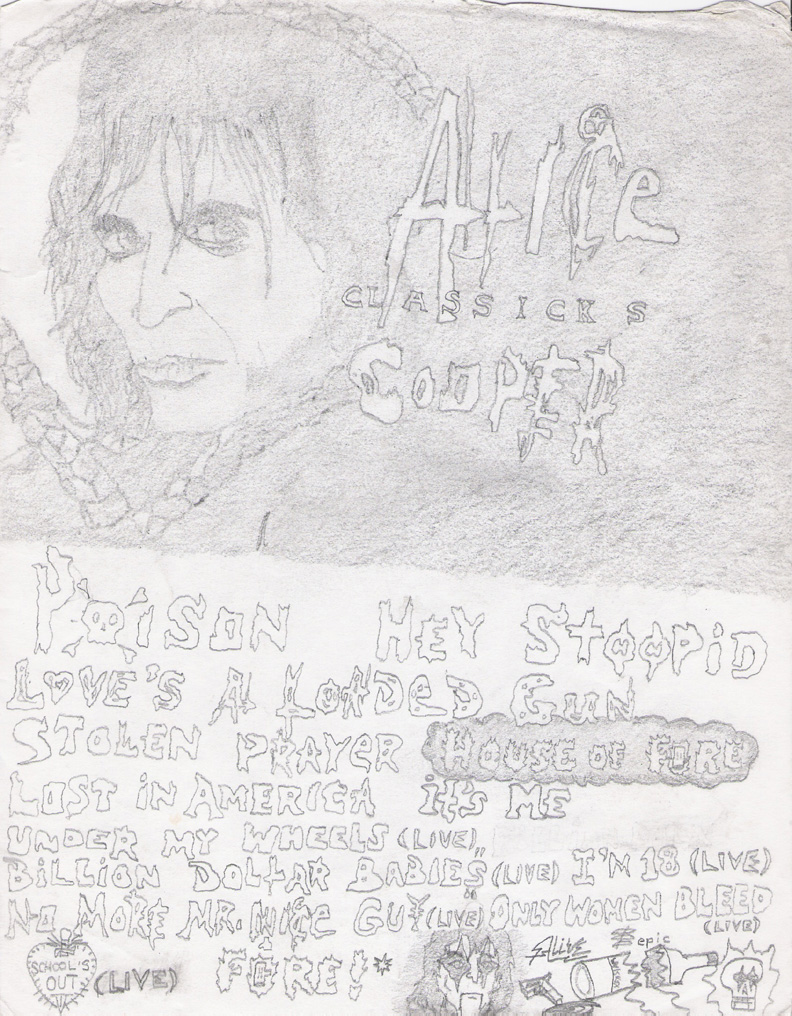 ALICE
CLASSICKS
COOPER
POISON HEY STOOPiD
LOVE'S A LOADED GUN
STOLEN PRAYER HOUSE OF FIRE
LOST iN AMERICA iT'S ME
UNDER MY WHEELS (LIVE)
BILLION DOLLAR BABIES (LIVE) I'M 18 (LIVE)
NO MORE MR. NICE GUY (LIVE) ONLY WOMEN BLEED
(LIVE)
SCHOOL'S
OUT (LIVE) FIRE!*
Alice epic